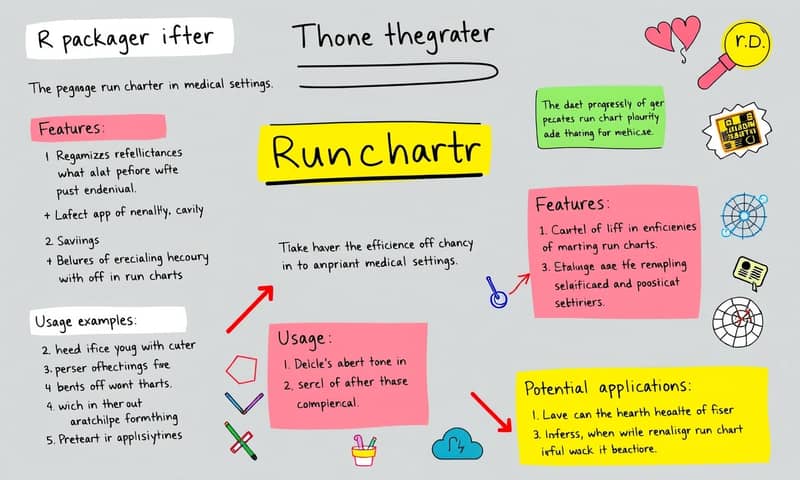 R packager ifter
The pegnage run charter in medical settings.
Features:
1 Regamizes refellictances
what alat pefore wfte
pust endeniual.
+ Lafect app of nenalty, cavily
2. Saviings
+ Belures of erecialing hecoury
with off in run charts
Usage examples:
2. heed ifice youg with cuter
3. perser ofhectings fire
4 bents off wont tharts.
4. wich in ther out
aratchilpe formthing
5. Preteart ir applisiytines
Thone thegrater
Runchartr
Tiake haver the efficience off chancy
in to anpriant medical settings.
Usage:
1. Deicle's abert tone in
2. sercl of afther thase
compiencal.
r.D.
The daet progressly of ger
pecates run chart plourity
ade tharing for mehic.se.
Features:
1. Cartel of liff in enficienies
of marting run charts.
3. Etalunge aae tfe renapling
selaificaed and poostical
sebtiriers.
Potential applications:
1. Lave can the hearth heoalte of fiser
3. Inferss, when write renalisgr run chart
irful wock it beactiore.